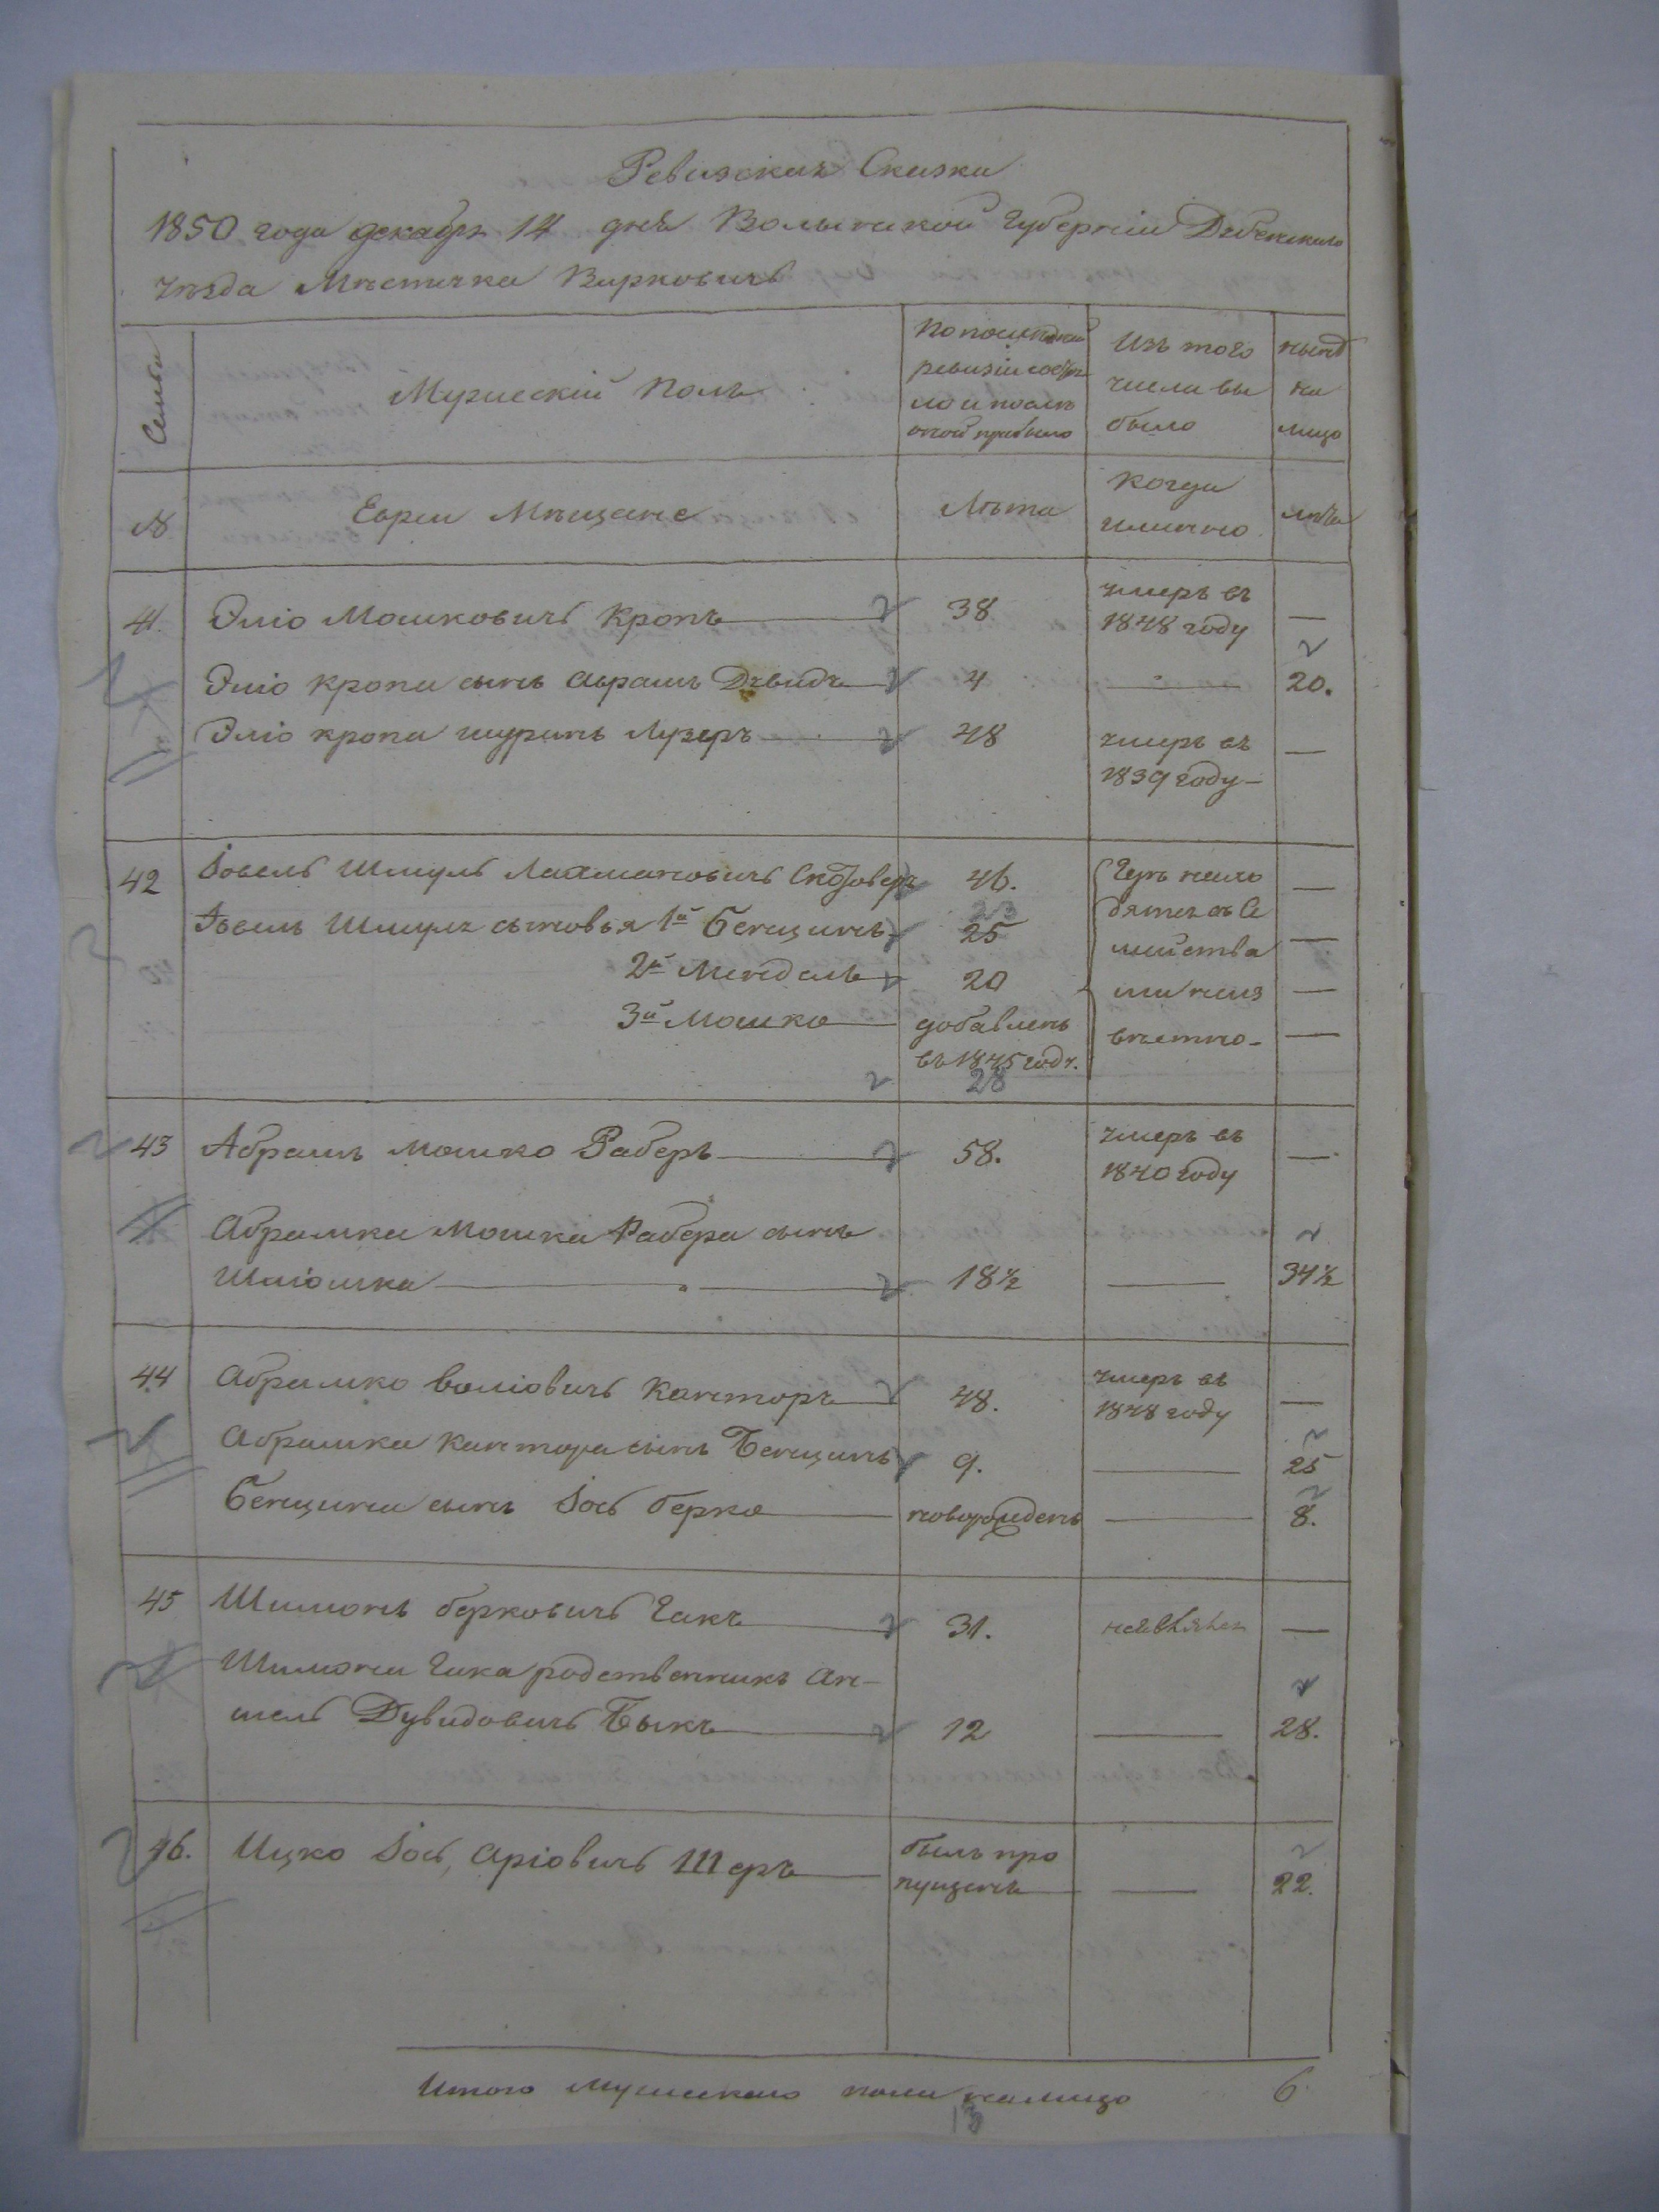 Ревизская Сказка
1850 года декабря 14 дня Волынской Губерніи Дубенского
уѣзда Мѣстечка Варковичь
Семьи
Мужескій Полъ
По последней
ревизіи состоя
ло и послѣ
оной прибыло
Изъ того
числа вы
было
нынѣ
на
лицо
№
Евреи Мѣщане
Лѣта
Когда
именно
лѣта
41.
Эліо Мошковичь Кропъ
38
умеръ въ
1848 году
—
Эліо Кропа сынъ Абрамъ Дувидъ
4
—
20.
Эліо Кропа шуринъ Лузеръ
48
умеръ въ
1839 году
—
42
Іовель Шмуль Лахмановичь
46.
—
Іовель Шмуля сыновья 1й Бенцинъ
23
25
—
2й Мендель
20
—
3й Мошко
добавленъ
въ 1845 году.
28
—
43
Абрамъ Мошко Раберъ
58.
умеръ въ
1840 году
—
Абрамка Мошка Рабера сынъ
Шліомка
18½
—
34½
44
Абрамко Воліовичь Канторъ
48.
умеръ въ
1848 году
—
Абрамка Кантора сынъ Бенцинъ
9.
—
25
Бенцина сынъ Іось Берко
новорожденъ
—
8.
45
Шимонъ Берковичь Гакъ
31.
—
Шимона Гака родственникъ Ан-
шель Дувидовичь Быкъ
12
—
28.
46.
Ицко Іось Аріовичь Шеръ
былъ про
пущенъ
—
22.
Итого мужеского пола налицо
6
13